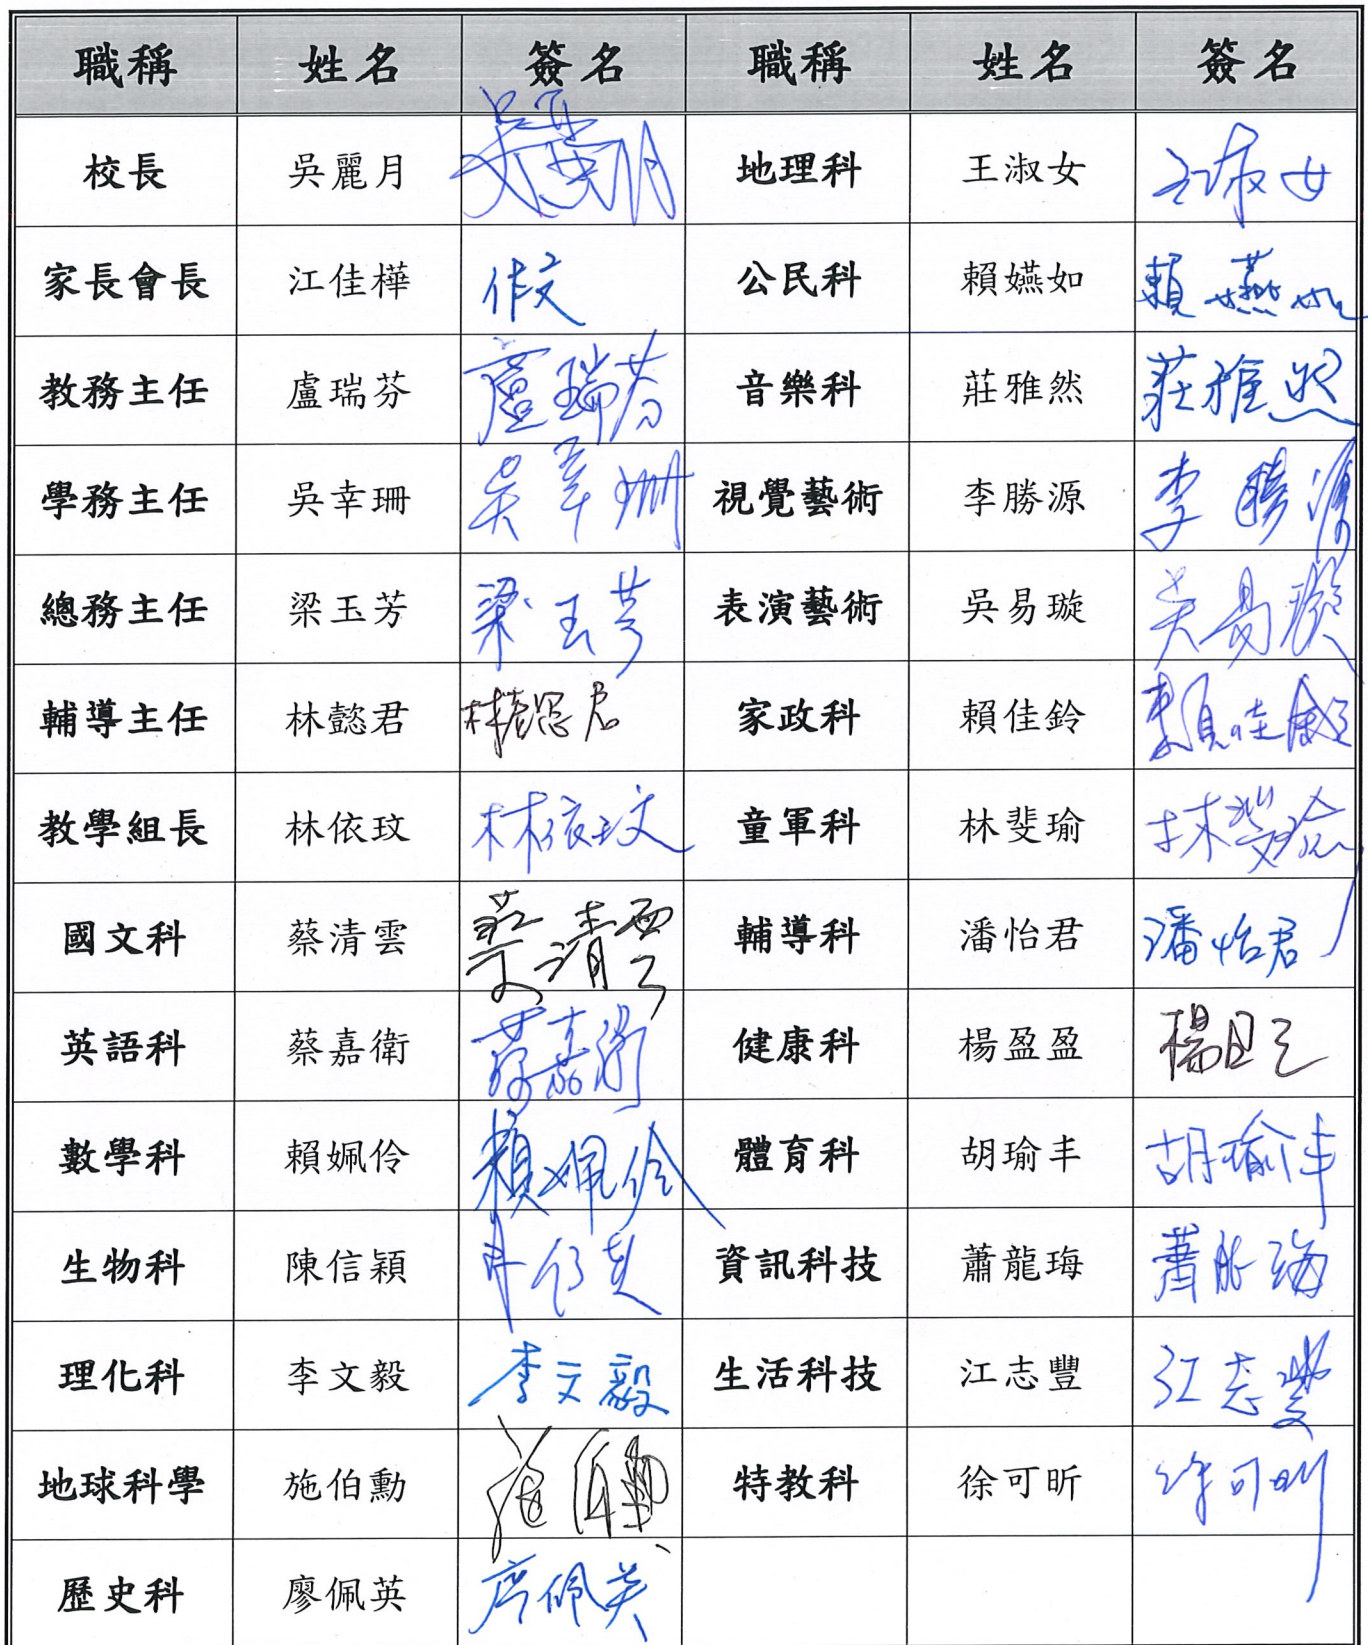 職稱 姓名 簽名 職稱 姓名 簽名
校長 吳麗月 吳麗月 地理科 王淑女 王淑女
家長會長 江佳樺 公民科 賴嬿如 賴嬿如
教務主任 盧瑞芬 盧瑞芬 音樂科 莊雅然 莊雅然
學務主任 吳幸珊 吳幸珊 視覺藝術 李勝源 李勝源
總務主任 梁玉芳 梁玉芳 表演藝術 吳易璇 吳易璇
輔導主任 林懿君 林懿君 家政科 賴佳鈴 賴佳鈴
教學組長 林依玟 林依玟 童軍科 林斐瑜 林斐瑜
國文科 蔡清雲 蔡清雲 輔導科 潘怡君 潘怡君
英語科 蔡嘉衛 蔡嘉衛 健康科 楊盈盈
數學科 賴姵伶 賴姵伶 體育科 胡瑜丰 胡瑜丰
生物科 陳信穎 資訊科技 蕭龍珻
理化科 李文毅 李文毅 生活科技 江志豐 江志豐
地球科學 施伯勳 施伯勳 特教科 徐可昕 徐可昕
歷史科 廖佩英 廖佩英